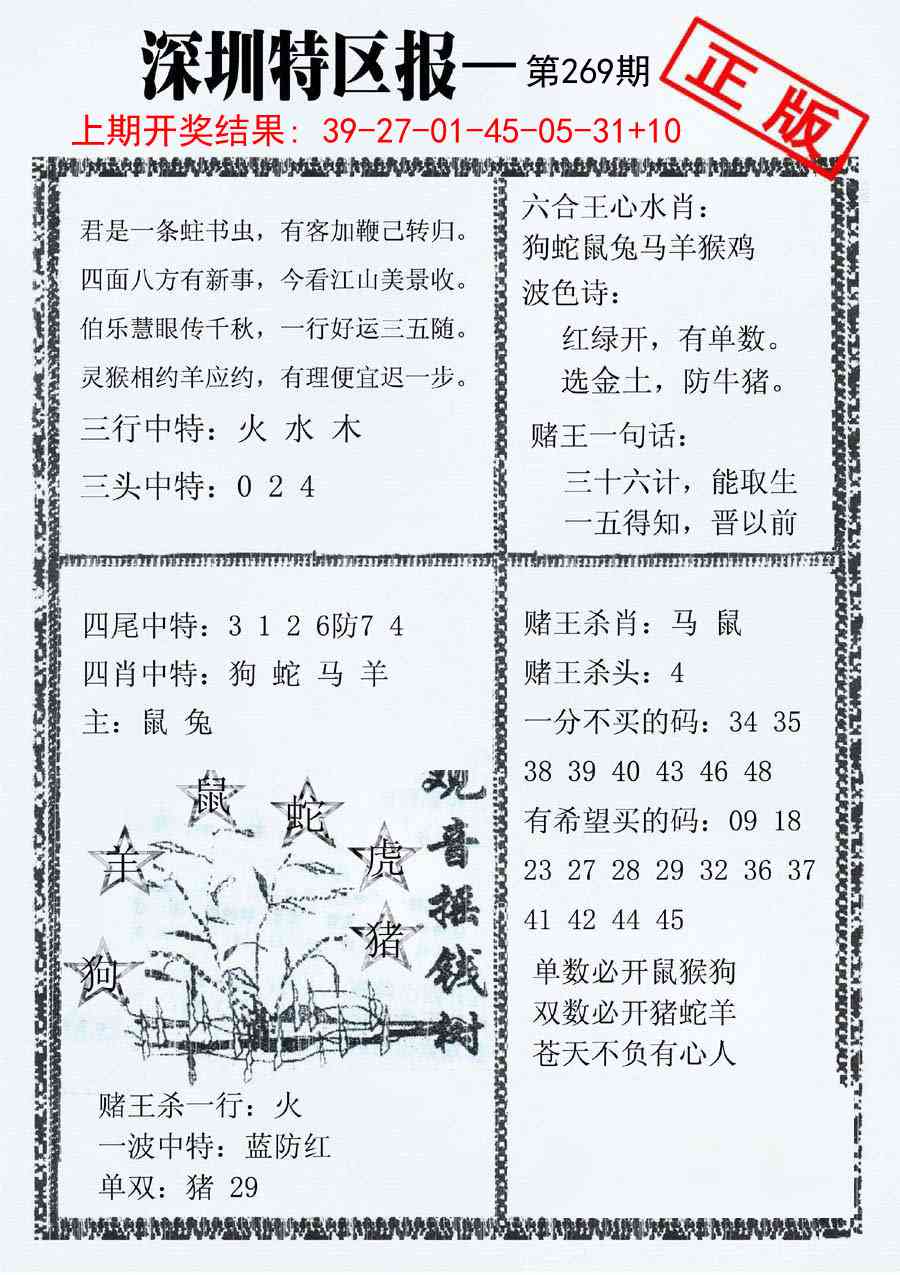 深圳特区报一第269期
正版
上期开奖结果: 39-27-01-45-05-31+10
君是一条蛀书虫，有客加鞭己转归。
四面八方有新事，今看江山美景收。
伯乐慧眼传千秋，一行好运三五随。
灵猴相约羊应约，有理便宜迟一步。
三行中特：火 水 木
三头中特：0 2 4
六合王心水肖：
狗蛇鼠兔马羊猴鸡
波色诗：
红绿开，有单数。
选金土，防牛猪。
赌王一句话：
三十六计，能取生
一五得知，晋以前
四尾中特：3 1 2 6防7 4
四肖中特：狗 蛇 马 羊
主：鼠 兔
鼠
蛇
羊
虎
猪
狗
观音摇钱树
赌王杀一行：火
一波中特：蓝防红
单双：猪 29
赌王杀肖：马 鼠
赌王杀头：4
一分不买的码：34 35
38 39 40 43 46 48
有希望买的码：09 18
23 27 28 29 32 36 37
41 42 44 45
单数必开鼠猴狗
双数必开猪蛇羊
苍天不负有心人